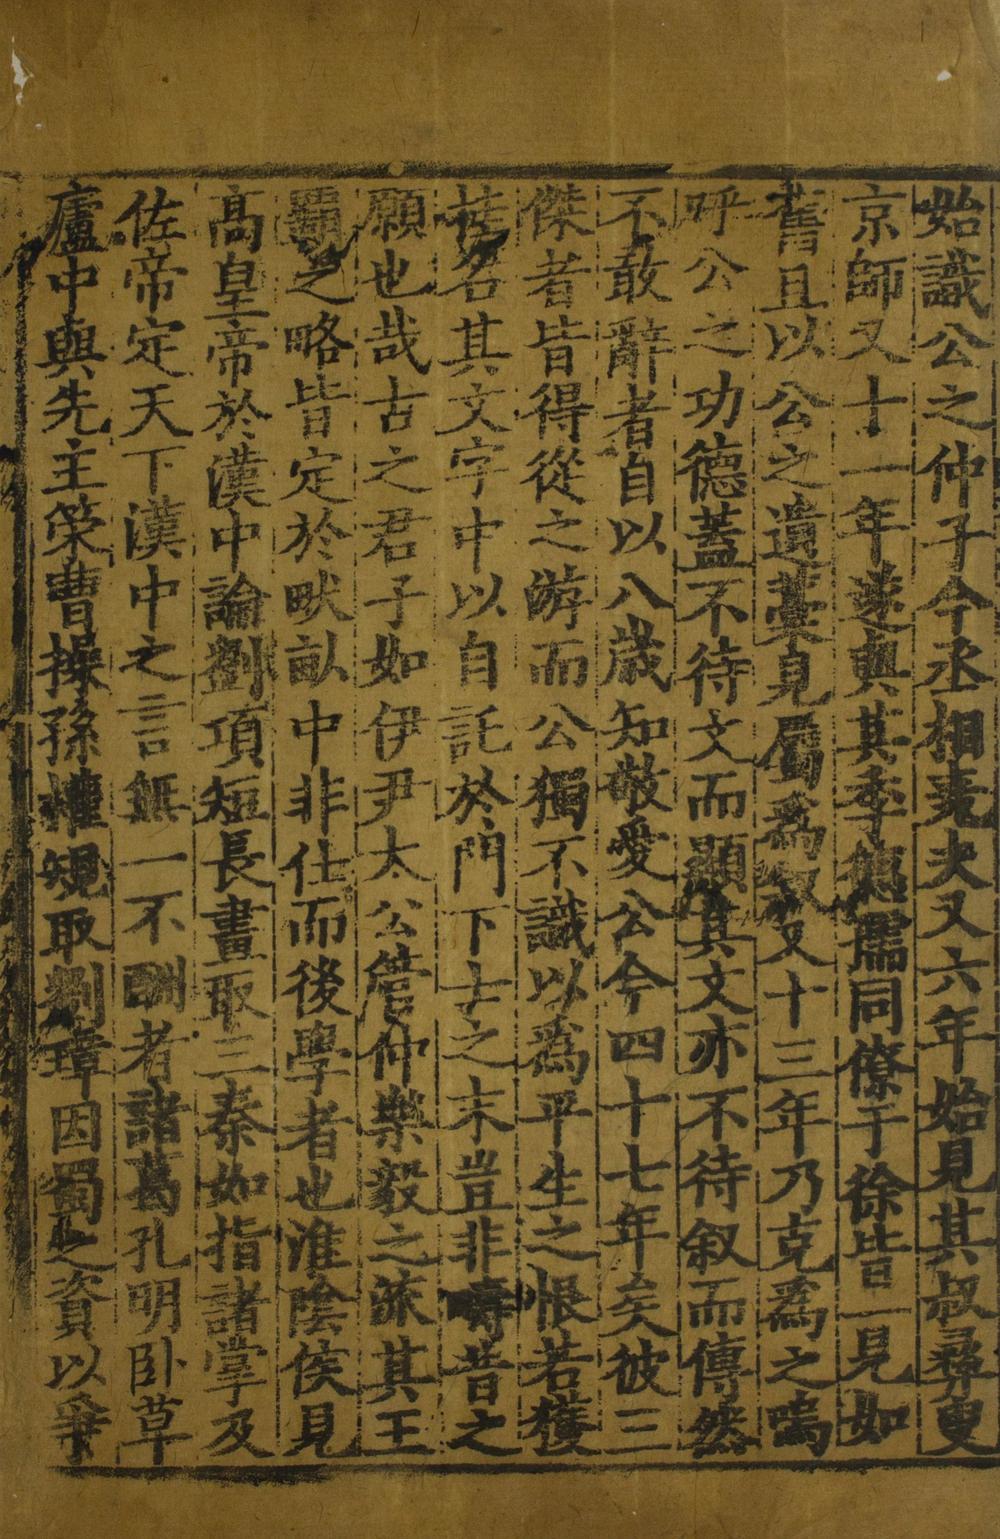 始識公之仲子今丞相堯夫又六年始見其叔彛叟
京師又十一年遂與其季德孺同僚于徐皆一見如
舊且以公之遺藁見屬爲叙又十三年乃克爲之嗚
呼公之功德蓋不待文而顯其文亦不待叙而傳然
不敢辭者自以八歲知敬愛公今四十七年矣彼三
傑者皆得從之游而公獨不識以爲平生之恨若獲
挂名其文字中以自託於門下士之末豈非疇昔之
願也哉古之君子如伊尹太公管仲樂毅之流其王
霸之略皆定於畎畝中非仕而後學者也淮陰侯見
高皇帝於漢中論劉項短長畫取三秦如指諸掌及
佐帝定天下漢中之言無一不酬者諸葛孔明卧草
廬中與先主策曹操孫權規取劉璋因蜀之資以爭